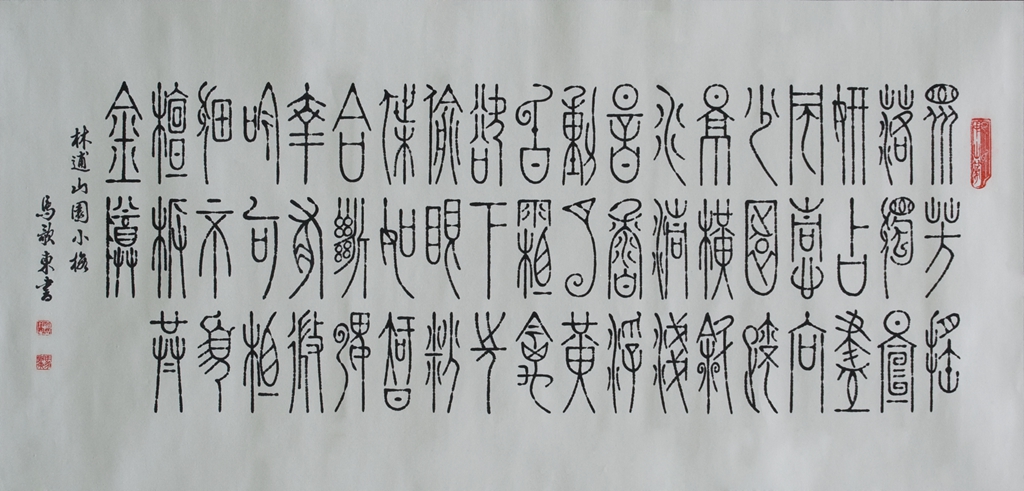 眾芳搖
落獨暄
妍占盡
風情向
小園疏
影橫斜
水清淺
暗香浮
動月黃
昏霜禽
欲下先
偷眼粉
蝶如知
合斷魂
幸有微
吟可相
狎不須
檀板共
金樽
林逋山園小梅
馬歌東書